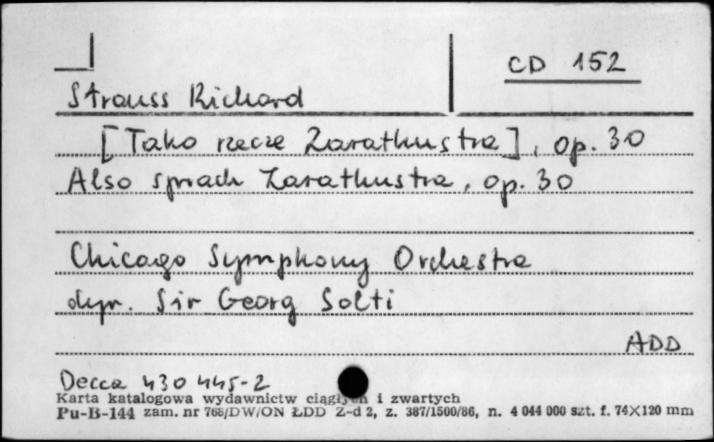 CD 152
Strauss Richard
[Tako rzecze Zarathustra], op. 30
Also sprach Zarathustra, op. 30
Chicago Symphony Orchestra
dyr. Sir Georg Solti
ADD
Decca 430 445-2
Karta katalogowa wydawnictw ciągłych i zwartych
Pu-B-144 zam. nr 768/DW/ON ŁDD Z-d 2, z. 387/1500/86, n. 4 044 000 szt. f. 74X120 mm